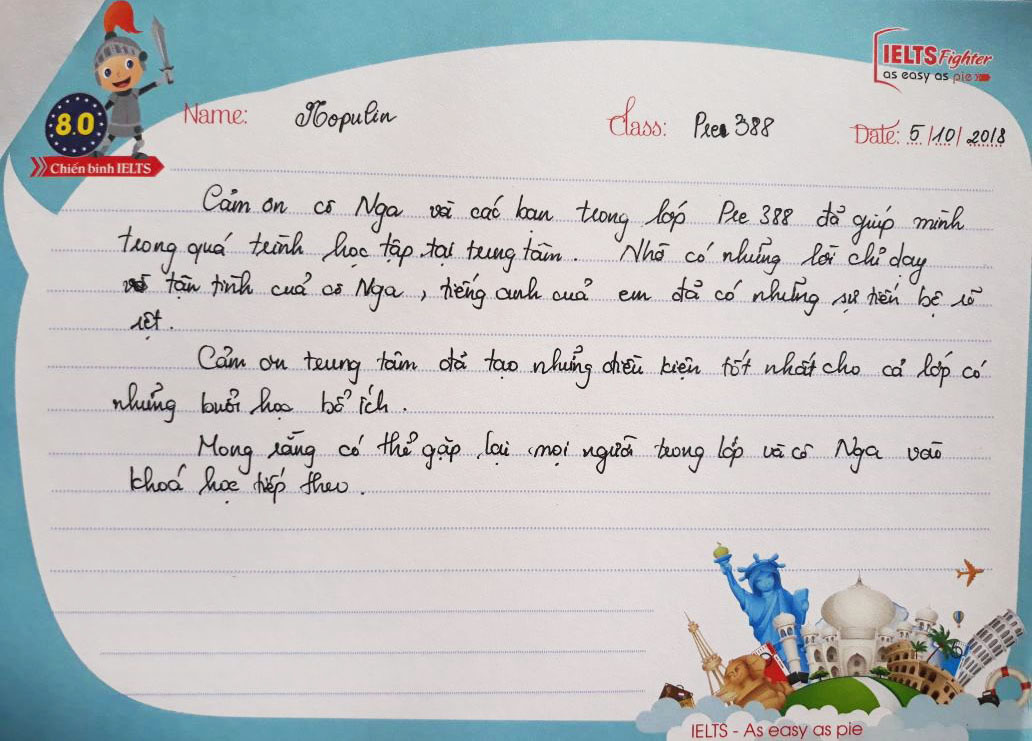 IELTS Fighter
as easy as pie
8.0
Chiến binh IELTS
Name: Mopulin Class: Pre 388 Date: 5/10/2018
Cảm ơn cô Nga và các bạn trong lớp Pre 388 đã giúp mình
trong quá trình học tập tại trung tâm. Nhờ có những lời chỉ dạy
tận tình cuả cô Nga, tiếng anh cuả em đã có những sự tiến bộ rõ
rệt.
Cảm ơn trung tâm đã tạo những điều kiện tốt nhất cho cả lớp có
những buổi học bổ ích.
Mong rằng có thể gặp lại mọi người trong lớp và cô Nga vào
khoá học tiếp theo.
IELTS - As easy as pie